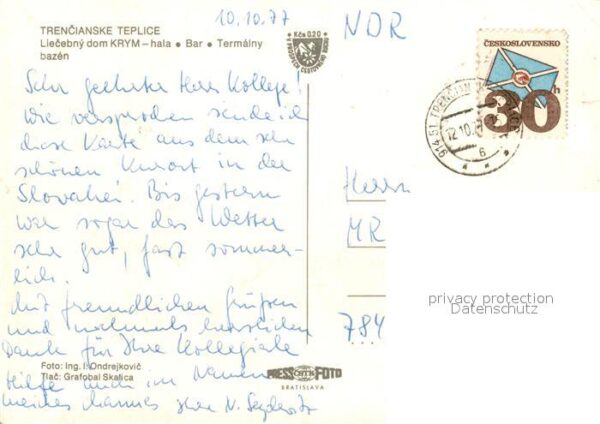 10.10.77
NDR
TRENČIANSKE TEPLICE
Liečebný dom KRYM – hala • Bar • Termálny
bazén
Kčs 0,20
V PROSPECH CESTOVNÉHO RUCHU
ČESKOSLOVENSKO
30h
914 51 TRENČIAN
12.10.77
6
Sehr geehrter Herr Kollege!
Wie versprochen sende ich
diese Karte aus dem sehr
schönen Kurort in der
Slovakei. Bis gestern
war sogar das Wetter
sehr gut, fast sommer-
lich.
Mit freundlichen Grüßen
und nochmals herzlichen
Dank für Ihre Kollegiale
Hilfe auch im Namen
meines Mannes Ihre N.
Herrn
MR
784
privacy protection
Datenschutz
Foto: Ing. I. Ondrejkovič
Tlač: Grafobal Skalica
PRESSFOTO
BRATISLAVA